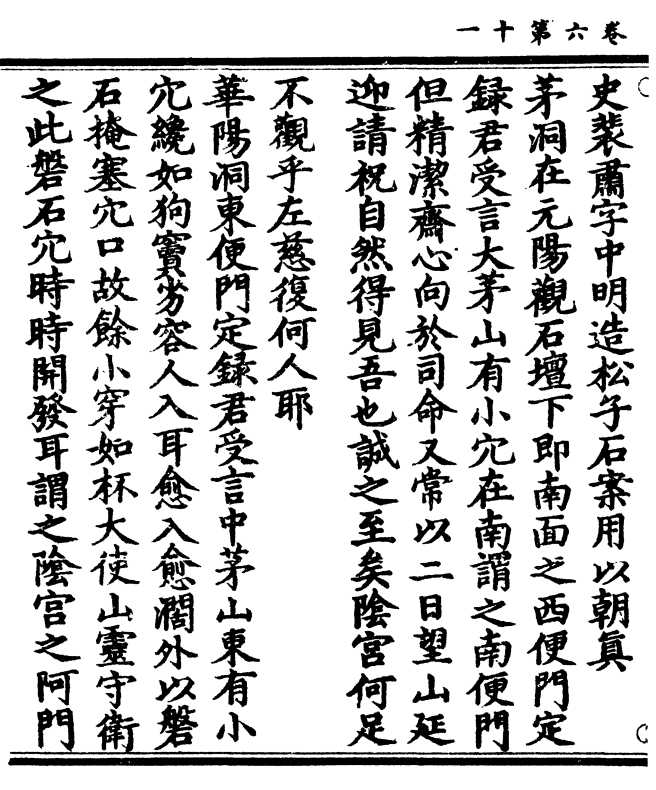 卷六第十一
史裴肅字中明造松子石案用以朝真
茅洞在元陽觀石壇下即南面之西便門定
録君受言大茅山有小穴在南謂之南便門
但精潔齋心向於司命又常以二日望山延
迎請祝自然得見吾也誠之至矣隂宮何足
不觀乎左慈復何人耶
華陽洞東便門定録君受言中茅山東有小
穴纔如狗竇劣容人入耳愈入愈濶外以磐
石掩塞穴口故餘小穿如杯大使山靈守衛
之此磐石穴時時開發耳謂之隂宮之阿門